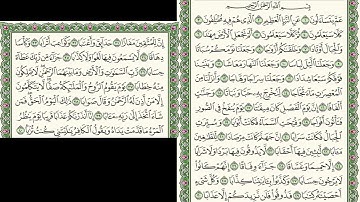 بِسْمِ ٱللَّهِ ٱلرَّحْمَٰنِ ٱلرَّحِيمِ
عَمَّ يَتَسَآءَلُونَ ١ عَنِ ٱلنَّبَإِ ٱلْعَظِيمِ ٢ ٱلَّذِى هُمْ فِيهِ مُخْتَلِفُونَ ٣
كَلَّا سَيَعْلَمُونَ ٤ ثُمَّ كَلَّا سَيَعْلَمُونَ ٥ أَلَمْ نَجْعَلِ ٱلْأَرْضَ مِهَٰدًا ٦
وَٱلْجِبَالَ أَوْتَادًا ٧ وَخَلَقْنَٰكُمْ أَزْوَٰجًا ٨ وَجَعَلْنَا نَوْمَكُمْ سُبَاتًا ٩
وَجَعَلْنَا ٱلَّيْلَ لِبَاسًا ١٠ وَجَعَلْنَا ٱلنَّهَارَ مَعَاشًا ١١ وَبَنَيْنَا
فَوْقَكُمْ سَبْعًا شِدَادًا ١٢ وَجَعَلْنَا سِرَاجًا وَهَّاجًا ١٣ وَأَنزَلْنَا مِنَ
ٱلْمُعْصِرَٰتِ مَآءً ثَجَّاجًا ١٤ لِّنُخْرِجَ بِهِۦ حَبًّا وَنَبَاتًا ١٥ وَجَنَّٰتٍ
أَلْفَافًا ١٦ إِنَّ يَوْمَ ٱلْفَصْلِ كَانَ مِيقَٰتًا ١٧ يَوْمَ يُنفَخُ فِى ٱلصُّورِ
فَتَأْتُونَ أَفْوَاجًا ١٨ وَفُتِحَتِ ٱلسَّمَآءُ فَكَانَتْ أَبْوَٰبًا ١٩ وَسُيِّرَتِ
ٱلْجِبَالُ فَكَانَتْ سَرَابًا ٢٠ إِنَّ جَهَنَّمَ كَانَتْ مِرْصَادًا ٢١ لِّلطَّٰغِينَ
مَـَٔابًا ٢٢ لَّٰبِثِينَ فِيهَآ أَحْقَابًا ٢٣ لَّا يَذُوقُونَ فِيهَا بَرْدًا وَلَا شَرَابًا ٢٤
إِلَّا حَمِيمًا وَغَسَّاقًا ٢٥ جَزَآءً وِفَاقًا ٢٦ إِنَّهُمْ كَانُوا۟
لَا يَرْجُونَ حِسَابًا ٢٧ وَكَذَّبُوا۟ بِـَٔايَٰتِنَا كِذَّابًا ٢٨ وَكُلَّ شَىْءٍ
أَحْصَيْنَٰهُ كِتَٰبًا ٢٩ فَذُوقُوا۟ فَلَن نَّزِيدَكُمْ إِلَّا عَذَابًا ٣٠
إِنَّ لِلْمُتَّقِينَ مَفَازًا ٣١ حَدَآئِقَ وَأَعْنَٰبًا ٣٢ وَكَوَاعِبَ أَتْرَابًا ٣٣
وَكَأْسًا دِهَاقًا ٣٤ لَّا يَسْمَعُونَ فِيهَا لَغْوًا وَلَا كِذَّٰبًا ٣٥ جَزَآءً مِّن رَّبِّكَ عَطَآءً
حِسَابًا ٣٦ رَّبِّ ٱلسَّمَٰوَٰتِ وَٱلْأَرْضِ وَمَا بَيْنَهُمَا ٱلرَّحْمَٰنِ لَا يَمْلِكُونَ
مِنْهُ خِطَابًا ٣٧ يَوْمَ يَقُومُ ٱلرُّوحُ وَٱلْمَلَٰٓئِكَةُ صَفًّا لَّا يَتَكَلَّمُونَ
إِلَّا مَنْ أَذِنَ لَهُ ٱلرَّحْمَٰنُ وَقَالَ صَوَابًا ٣٨ ذَٰلِكَ ٱلْيَوْمُ ٱلْحَقُّ فَمَن
شَآءَ ٱتَّخَذَ إِلَىٰ رَبِّهِۦ مَـَٔابًا ٣٩ إِنَّآ أَنذَرْنَٰكُمْ عَذَابًا قَرِيبًا يَوْمَ يَنظُرُ
ٱلْمَرْءُ مَا قَدَّمَتْ يَدَاهُ وَيَقُولُ ٱلْكَافِرُ يَٰلَيْتَنِى كُنتُ تُرَٰبًۢا ٤٠